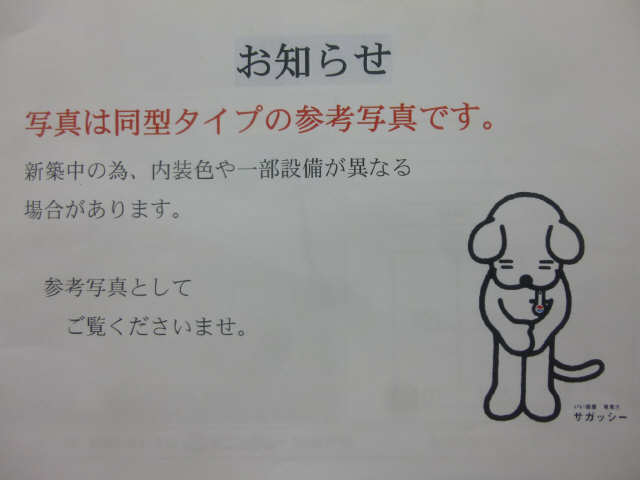 お知らせ
写真は同型タイプの参考写真です。
新築中の為、内装色や一部設備が異なる
場合があります。
参考写真として
ご覧くださいませ。
サガッシー